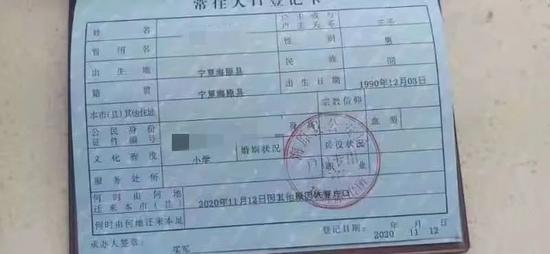 常住人口登记卡
姓名
户主或与户主关系
三子
曾用名
性别
男
出生地
宁夏海原县
民族
回
籍贯
宁夏海原县
出生日期
1990年12月03日
本市(县)其他住址
宗教信仰
公民身份证件编号
身高
血型
文化程度
小学
婚姻状况
兵役状况
服务处所
职业
何时由何地迁来本市(县)
2020年11月12日因其他原因恢复户口
何时由何地迁来本址
承办人签章:
登记日期:
年 月 日
2020 11 12